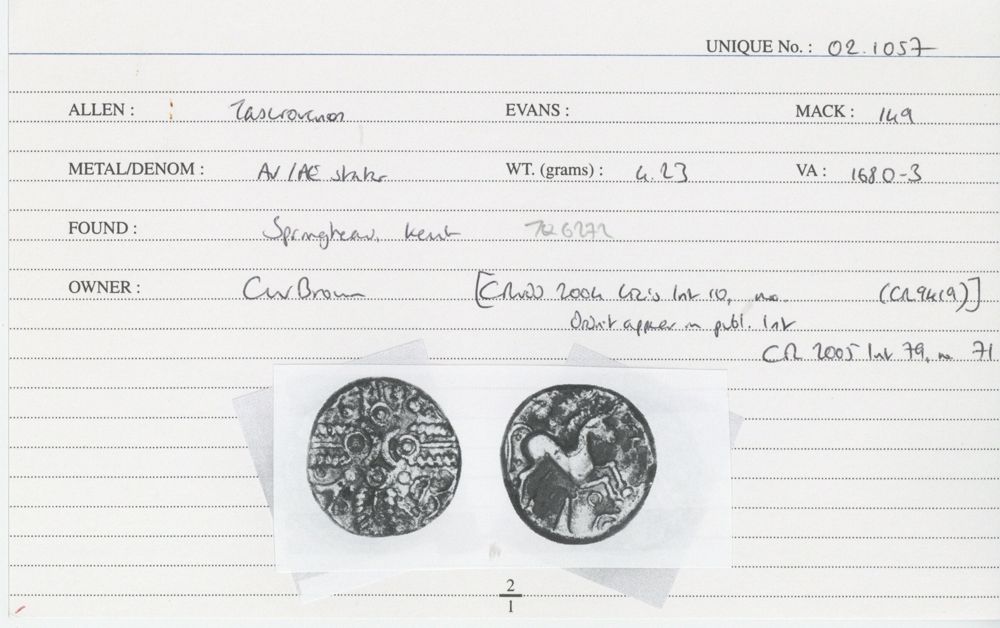 UNIQUE No. : 02.1057
ALLEN : Tasciovanos EVANS : MACK : 149
METAL/DENOM : AV/AE stater WT. (grams) : 4.23 VA : 1680-3
FOUND : Springhead, Kent 726272
OWNER : CW Brown [CR 2004 list 10, no. (CR9419)]
Didn't appear in publ. list
CR 2005 list 79, no 71
2
1